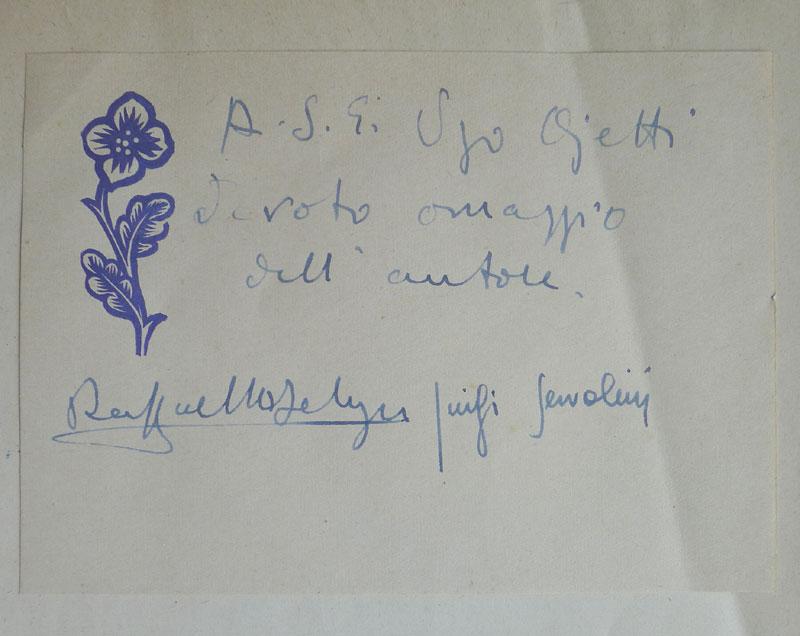 A. S. E. Ugo Ojetti
devoto omaggio
dell'autore.
Raffaello Luigi Servolini